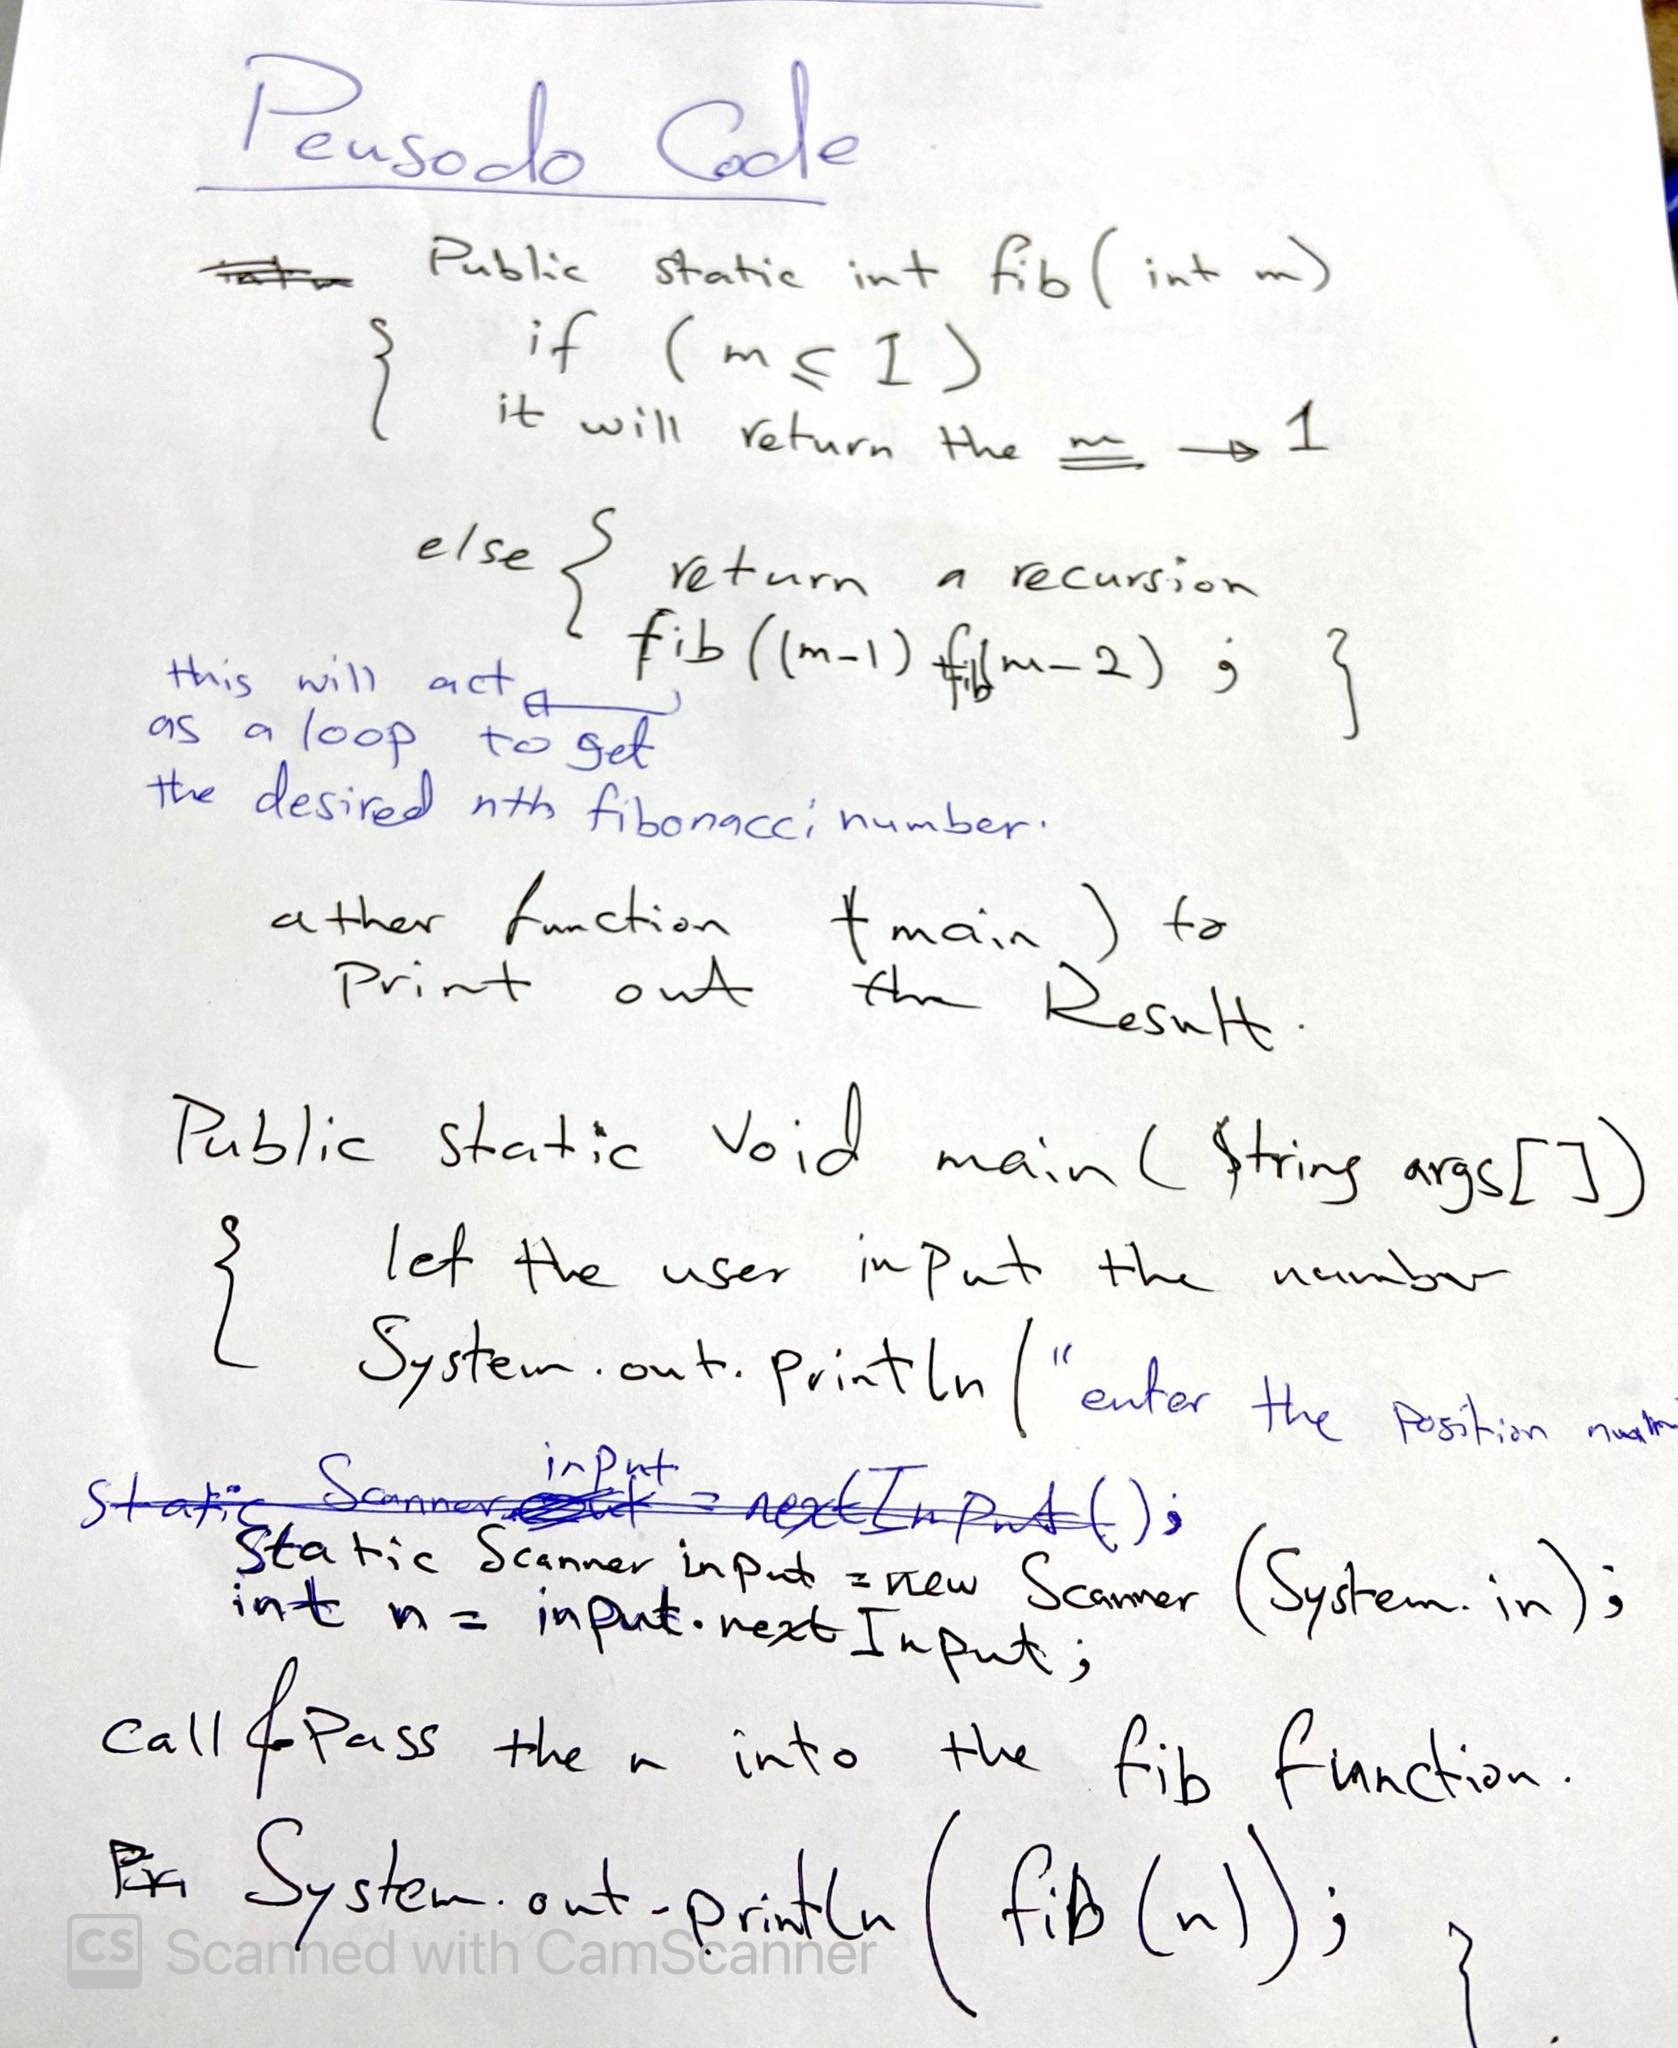 Peusodo Code
Public static int fib ( int m )
{ if ( m ≤ 1 )
it will return the m → 1
else { return a recursion
fib ((m-1) fib(m-2) ; }
this will act
as a loop to get
the desired nth fibonacci number.
ather function (main) to
Print out the Result.
Public static void main ( String args [ ] )
{ let the user input the number
System.out.println ( "enter the position
static Scanner input = nextInput();
static Scanner input = new Scanner (System.in);
int n = input.nextInput;
call & Pass the n into the fib function.
System.out.println ( fib (n) ) ; }
CS Scanned with CamScanner